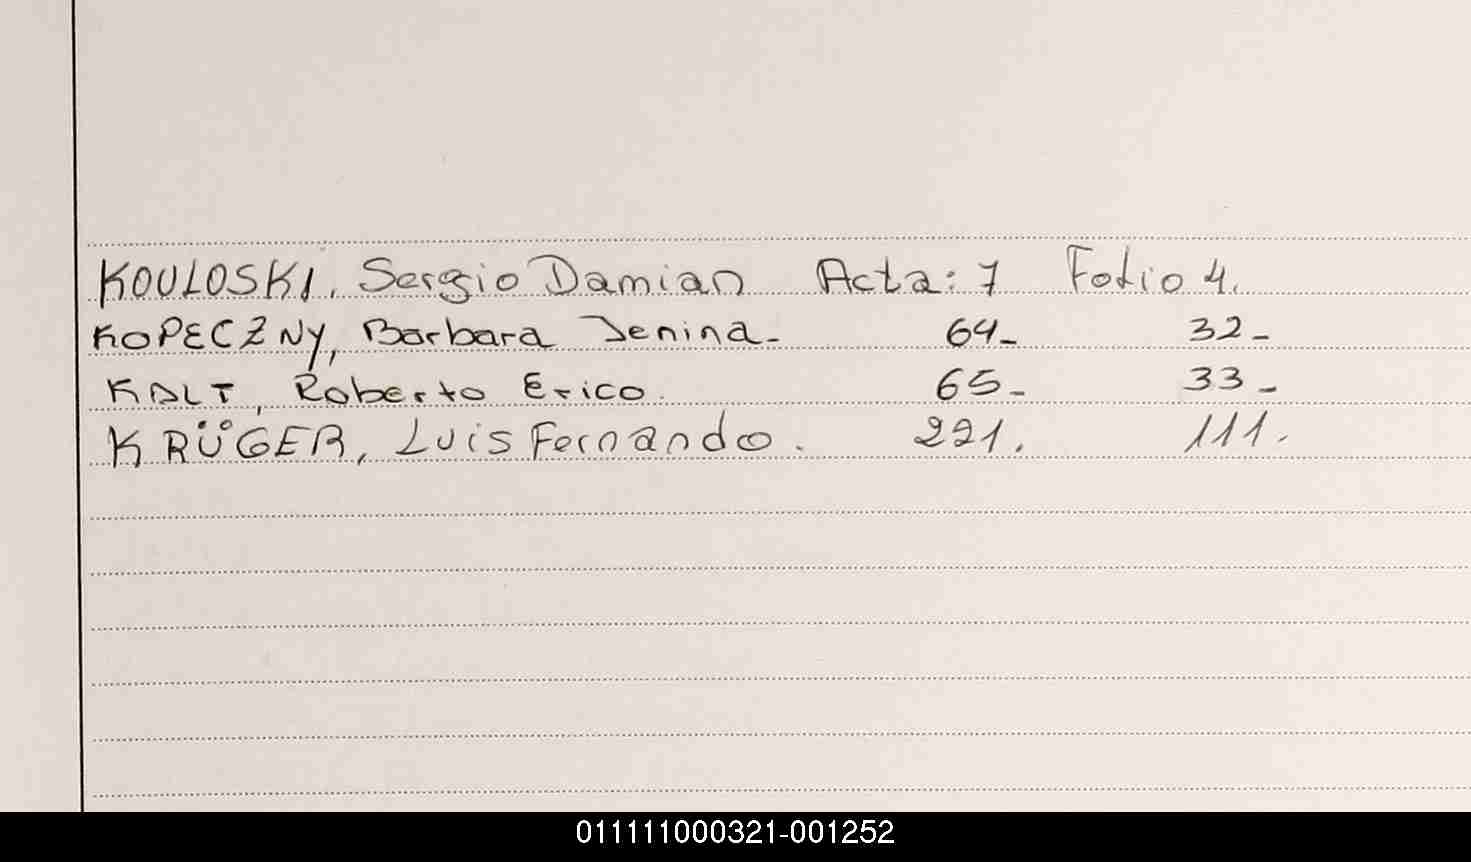 KOULOSKI, Sergio Damian Acta: 7 Folio 4.
KOPECZNY, Barbara Jenina- 64- 32-
KALT, Roberto Erico. 65- 33-
KRÜGER, Luis Fernando. 221. 111.
011111000321-001252